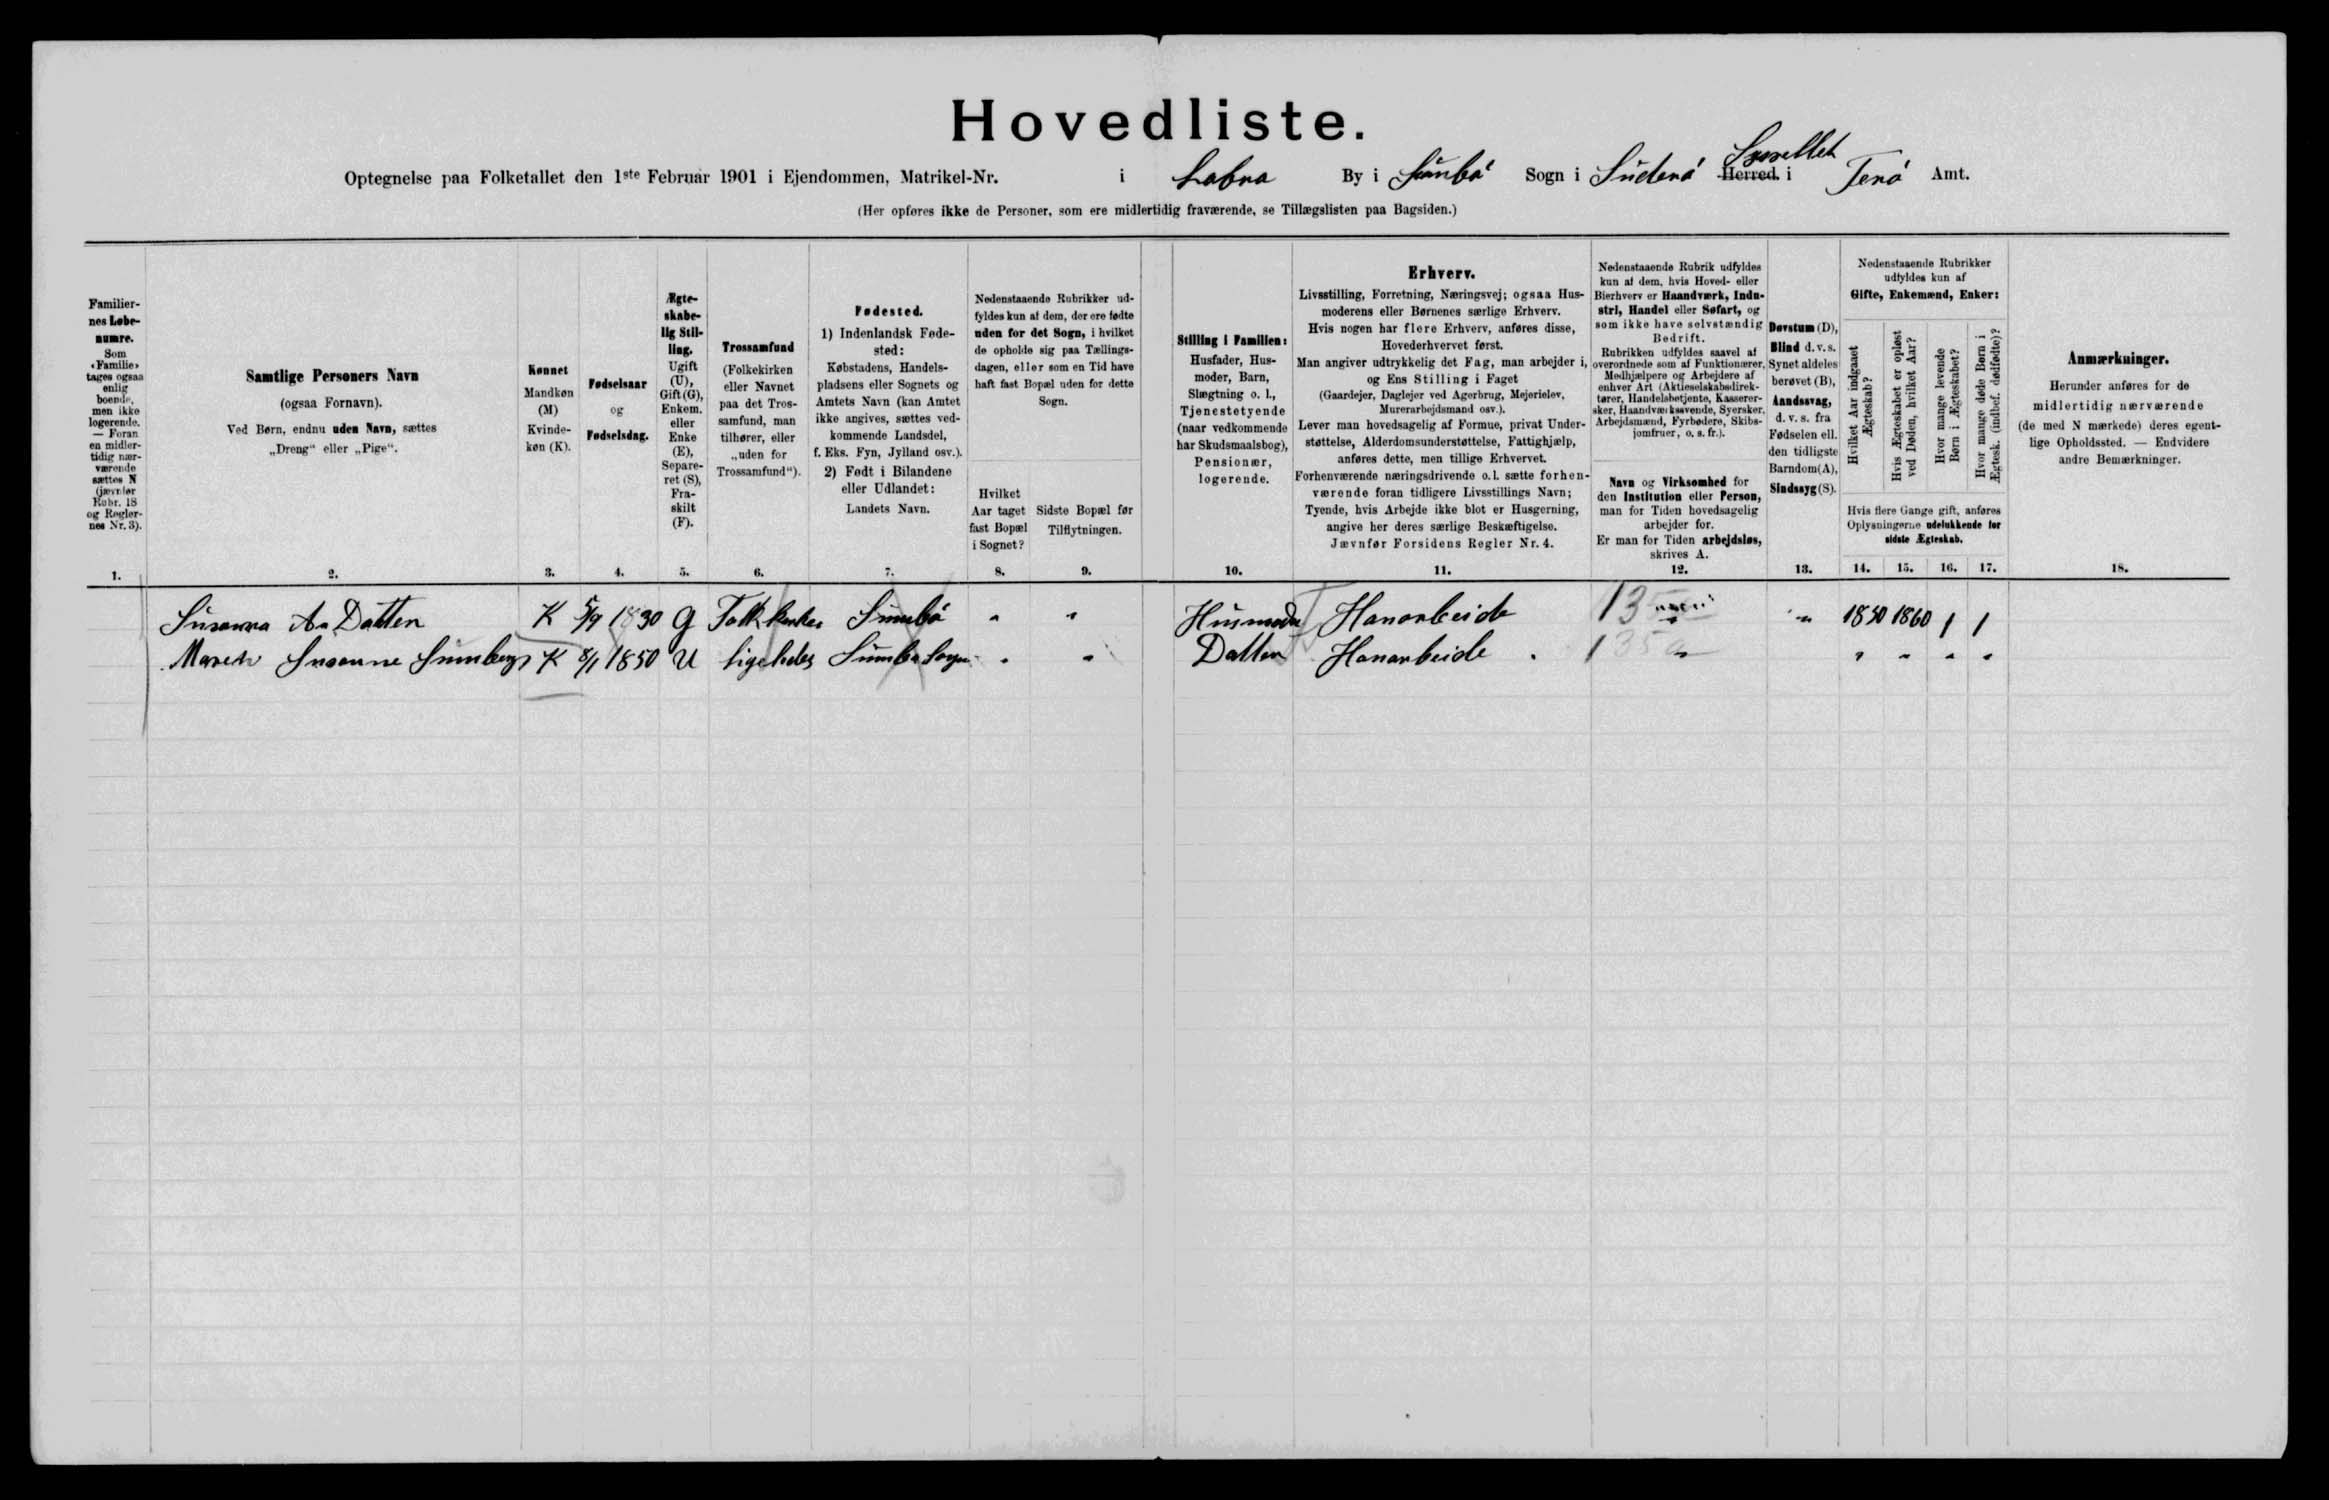 Hovedliste.
Optegnelse paa Folketallet den 1ste Februar 1901 i Ejendommen, Matrikel-Nr. i Lobra By i Sumbö Sogn i Süderö Herred i Syssellet Ferö Amt.
(Her opføres ikke de Personer, som ere midlertidig fraværende, se Tillægslisten paa Bagsiden.)
Familiernes Løbenumre.
Som «Familie» tages ogsaa enlig boende, men ikke logerende. — Foran en midlertidig nærværende sættes N (jævnfør Rubr. 18 og Reglernes Nr. 3).
Samtlige Personers Navn
(ogsaa Fornavn).
Ved Børn, endnu uden Navn, sættes
„Dreng“ eller „Pige“.
Kønnet
Mandkøn (M)
Kvindekøn (K).
Fødselsaar
og
Fødselsdag.
Ægteskabelig Stilling.
Ugift (U), Gift (G), Enkem. eller Enke (E), Separeret (S), Fraskilt (F).
Trossamfund
(Folkekirken eller Navnet paa det Trossamfund, man tilhører, eller „uden for Trossamfund“).
Fødested.
1) Indenlandsk Fødested:
Købstadens, Handelspladsens eller Sognets og Amtets Navn (kan Amtet ikke angives, sættes vedkommende Landsdel, f. Eks. Fyn, Jylland osv.).
2) Født i Bilandene eller Udlandet:
Landets Navn.
Nedenstaaende Rubrikker udfyldes kun af dem, der ere fødte uden for det Sogn, i hvilket de opholde sig paa Tællingsdagen, eller som en Tid have haft fast Bopæl uden for dette Sogn.
Hvilket Aar taget fast Bopæl i Sognet?
Sidste Bopæl før Tilflytningen.
Stilling i Familien:
Husfader, Husmoder, Barn, Slægtning o. l., Tjenestetyende (naar vedkommende har Skudsmaalsbog), Pensionær, logerende.
Erhverv.
Livsstilling, Forretning, Næringsvej; ogsaa Husmoderens eller Børnenes særlige Erhverv.
Hvis nogen har flere Erhverv, anføres disse, Hovederhvervet først.
Man angiver udtrykkelig det Fag, man arbejder i, og Ens Stilling i Faget
(Gaardejer, Daglejer ved Agerbrug, Mejerielev, Murerarbejdsmand osv.).
Lever man hovedsagelig af Formue, privat Understøttelse, Alderdomsunderstøttelse, Fattighjælp, anføres dette, men tillige Erhvervet.
Forhenværende næringsdrivende o. l. sætte forhenværende foran tidligere Livsstillings Navn;
Tyende, hvis Arbejde ikke blot er Husgerning, angive her deres særlige Beskæftigelse.
Jævnfør Forsidens Regler Nr. 4.
Nedenstaaende Rubrik udfyldes kun af dem, hvis Hoved- eller Bierhverv er Haandværk, Industri, Handel eller Søfart, og som ikke have selvstændig Bedrift.
Rubrikken udfyldes saavel af overordnede som af Funktionærer, Medhjælpere og Arbejdere af enhver Art (Aktieselskabsdirektører, Handelsbetjente, Kasserersker, Haandværkssvende, Syersker, Arbejdsmænd, Fyrbødere, Skibsjomfruer, o. s. fr.).
Navn og Virksomhed for den Institution eller Person, man for Tiden hovedsagelig arbejder for.
Er man for Tiden arbejdsløs, skrives A.
Døvstum (D), Blind d. v. s. Synet aldeles berøvet (B), Aandssvag, d. v. s. fra Fødselen ell. den tidligste Barndom (A), Sindssyg (S).
Nedenstaaende Rubrikker udfyldes kun af
Gifte, Enkemænd, Enker:
Hvilket Aar indgaaet Ægteskab?
Hvis Ægteskabet er opløst ved Døden, hvilket Aar?
Hvor mange levende Børn i Ægteskabet?
Hvor mange døde Børn i Ægtesk. (indbef. dødfødte)?
Hvis flere Gange gift, anføres Oplysningerne udelukkende for sidste Ægteskab.
Anmærkninger.
Herunder anføres for de midlertidig nærværende (de med N mærkede) deres egentlige Opholdssted. — Endvidere andre Bemærkninger.
1. 2. 3. 4. 5. 6. 7. 8. 9. 10. 11. 12. 13. 14. 15. 16. 17. 18.
Susanna An Datter K 5/9 1830 G Folkkirken Sumbö " " Husmoder Hanarbeide 135a " " 1850 1860 1 1
Maren Susanne Sumberg K 8/1 1850 U ligeledes Sumbö Sogn " " Datter Hanarbeide 135a " " " " "